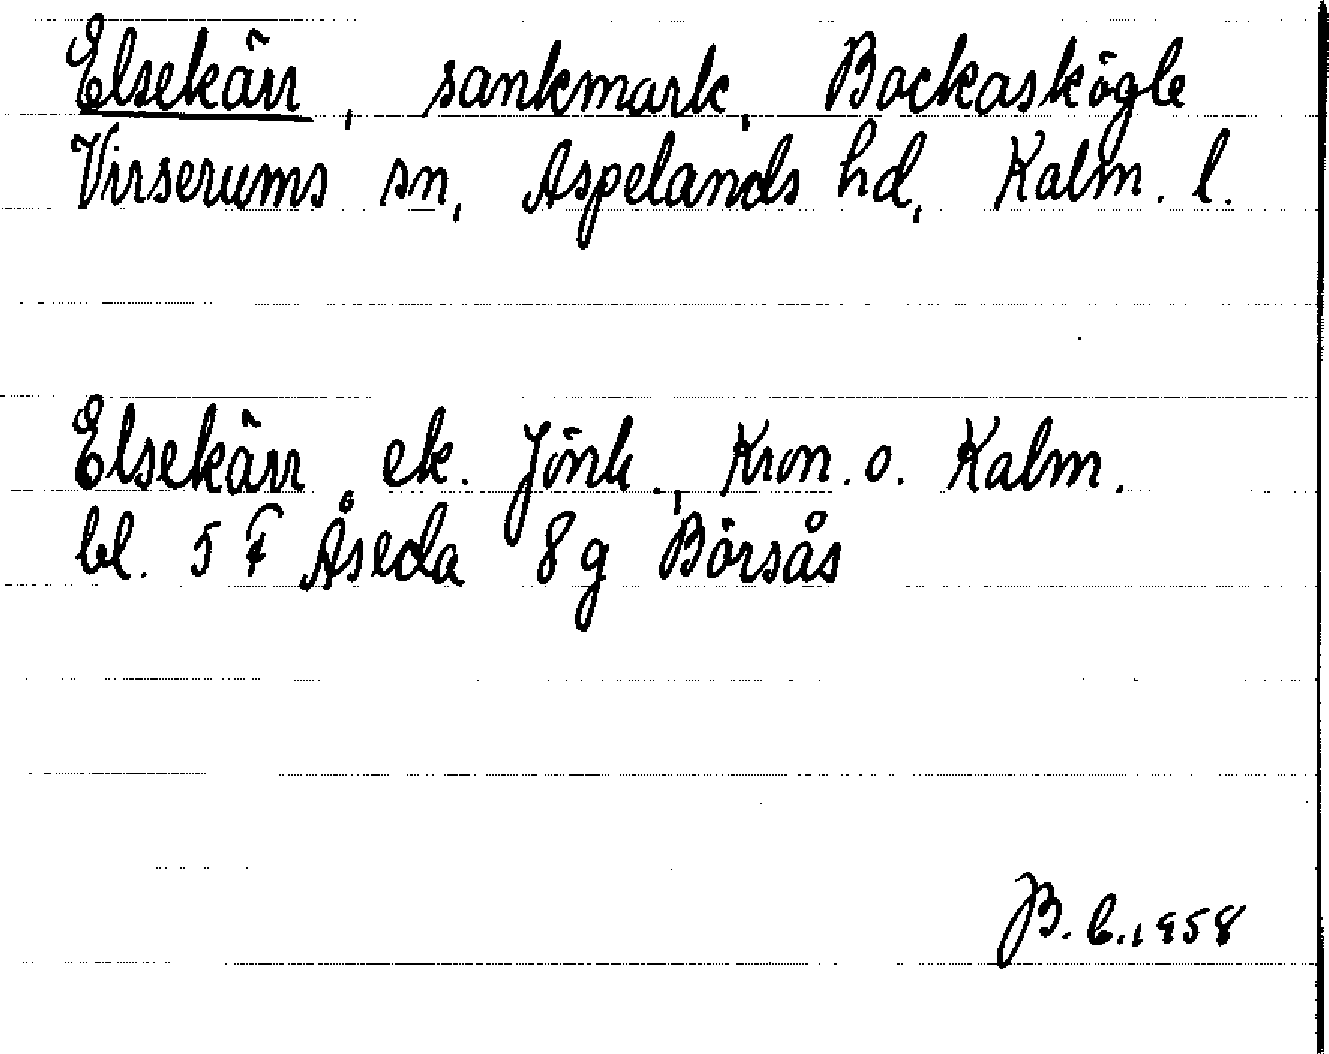 Elsekärr, sankmark, Bockaskögle
Virserums sn, Aspelands hd, Kalm. l.
Elsekärr, ek. Jönk., Kron. o. Kalm.
bl. 5 F Åseda 8g Börsås
B. b., 1958